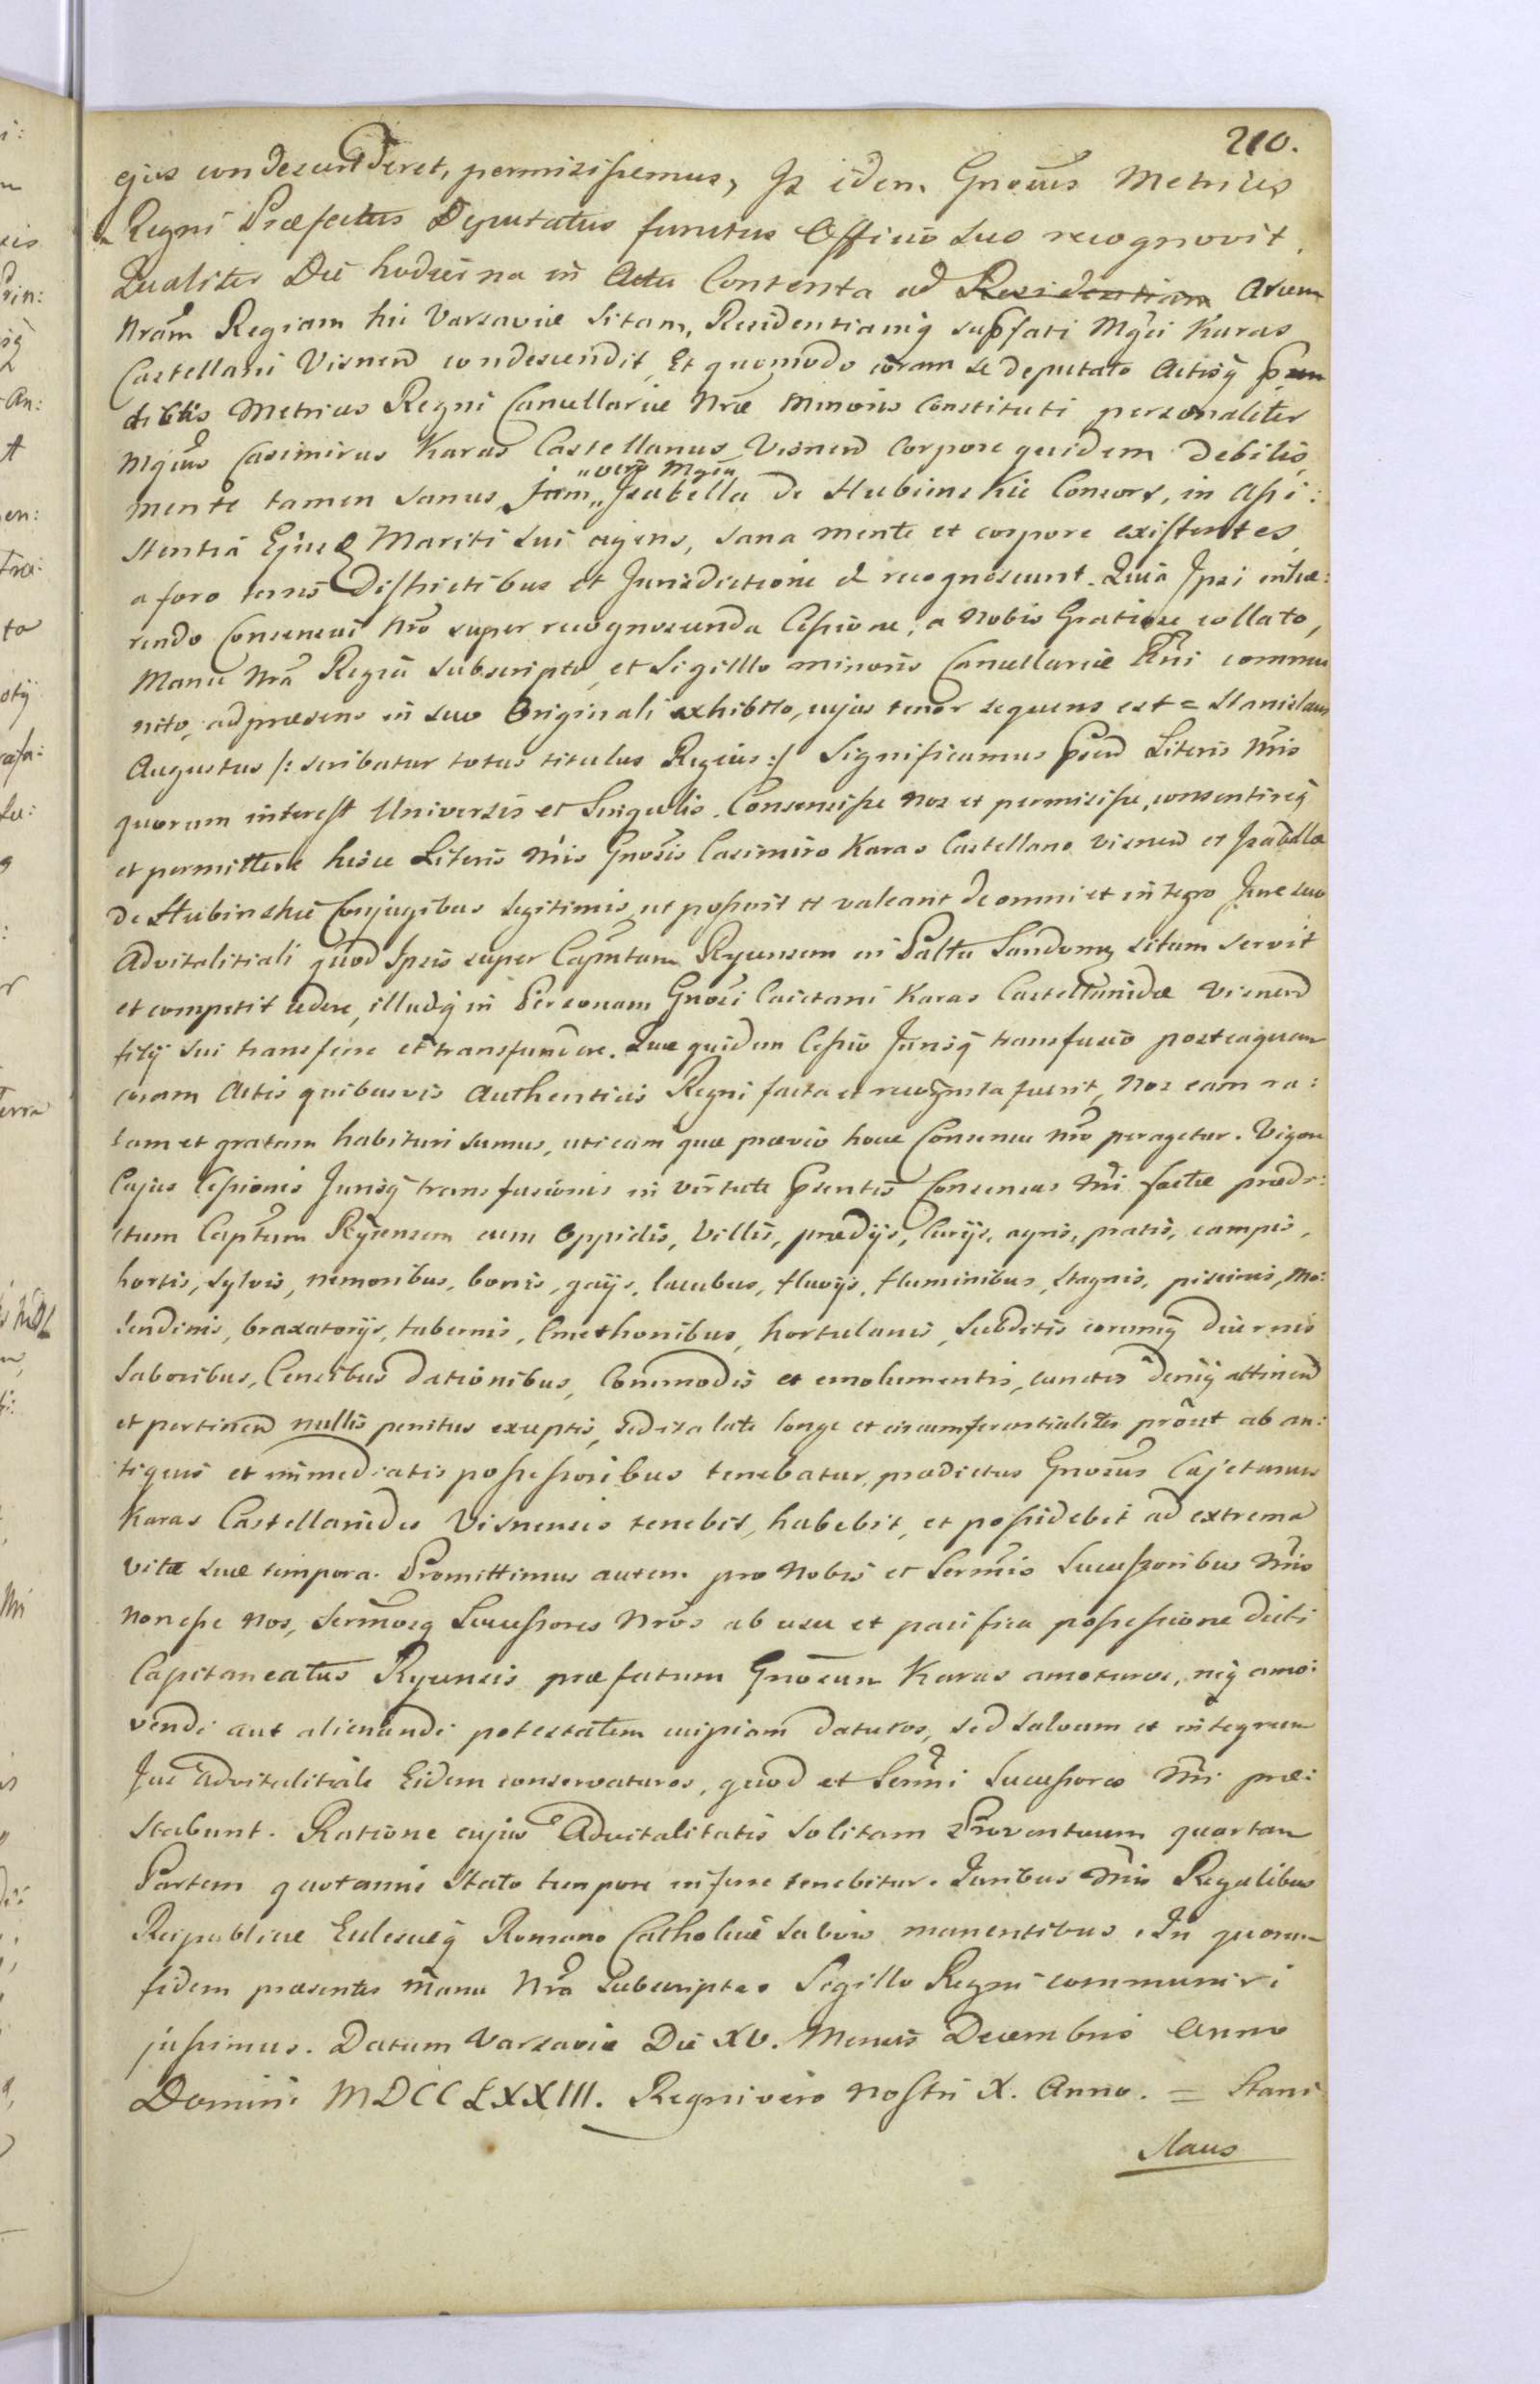 210.
ejus condescenderet, permisissemus, Is idem Gnosus Metrices
Regni Præfectus Deputatus functus Officio suo recognovit.
Qualiter Die hodierna in Actu Contenta ad Residentiam Arcem
Nram Regiam hic Varsaviæ sitam, Residentiamq supfati Mgci Karas
Castellani Visnen condescendit, Et quomodo coram se deputato Actisq
Metrices Regni Cancellariæ Nræ Minoris Constituti personaliter
Mgcus Casimirus Karas Castellanus Visnen Corpore quidem debilis,
mente tamen sanus, Isabella de Hubinskie Consors, in assi:
"vero Mgca
stentia Ejusd Mariti sui agens, sana mente et corpore existentes,
a foro terris Districtibus et Jurisdictione recognoscunt. Quia Ipsi inhæ:
rendo Consensui Nro super recognoscenda Cessione, a Nobis Gratiose collato,
Manu Nra Regia subscripto, et Sigilllo minoris Cancellariæ Rni commu
nito, ad præsens in suo Originali exhibito, cujus tenor sequens est = Stanislaus
Augustus /: scribatur totus titulus Regius :/ Significamus psen Literis Nris
quorum interest Universis et Singulis. Consensisse Nos et permisisse, consentireq
et permittere hisce Literis Nris Gnosis Casimiro Karas Castellano Visnen et Isabellæ
de Hubinskie Conjugibus legitimis, ut possint et valeant de omni et integro Jure suo
Advitalitiali quod Ipsis super Capntum Rycensem in Pallu Sandomz situm servit
et competit cedere, illudq in Personam Gnosi Caietani Karas Castellanidæ Visnen
filij sui transferre et transfundere. Quæ quidem Cessio Jurisq transfusio posteaquam
coram Actis quibusvis Authenticis Regni facta et recognita fuerit, Nos eam ra:
tam et gratam habituri sumus, uti eam quæ prævio hocce Consensu Nro peragetur. Vigore
Cujus Cessionis Jurisq transfusionis in virtute psentis Consensus Nri factæ prædi:
ctum Capntum Rycensem cum Oppidis, Villis, prædijs, Curijs, agris, pratis, campis,
hortis, sylvis, nemoribus, borris, gaijs, lacubus, fluvijs, fluminibus, stagnis, piscinis, Mo:
lendinis, braxatorijs, tabernis, Cmethonibus, hortulanis, Subditis eorumq diurnis
Laboribus, Censibus dationibus, Commodis et emolumentis, cunctis deniq attinen
et pertinen nullis penitus exceptis, sed ita late longe et circumferentialiter prout ab an:
tiquis et immediatis possessoribus tenebatur, prædictus Gnosus Cajetanus
Karas Castellanides Visnensis tenebit, habebit, et possidebit ad extrema
vitæ suæ tempora. Promittimus autem pro Nobis et Sermis Successoribus Nris
non esse Nos, Sermosq Successores Nros ab usu et pacifica possessione dicti
Capitaneatus Rycensis præfatum Gnosum Karas amoturos, neq amo:
vendi aut alienandi potestatem cuipiam daturos, sed salvum et integrum
Jus advitalitiale Eidem conservaturos, quod et Sermi Successores Nri præ:
stabunt. Ratione cujus Advitalitatis solitam Proventuum quartam
Partem quotannis Stato tempore inferre tenebitur. Juribus Nris Regalibus
Reipublicæ Eclesiæq Romano Catholicæ salvis manentibus. In quorum
fidem præsentes Manu Nra Subscriptas Sigillo Regni communiri
jussimus. Datum Varsaviæ Die XV. Mensis Decembris Anno
Domini MDCCLXXIII. Regni vero Nostri X. Anno. = Stani
slaus